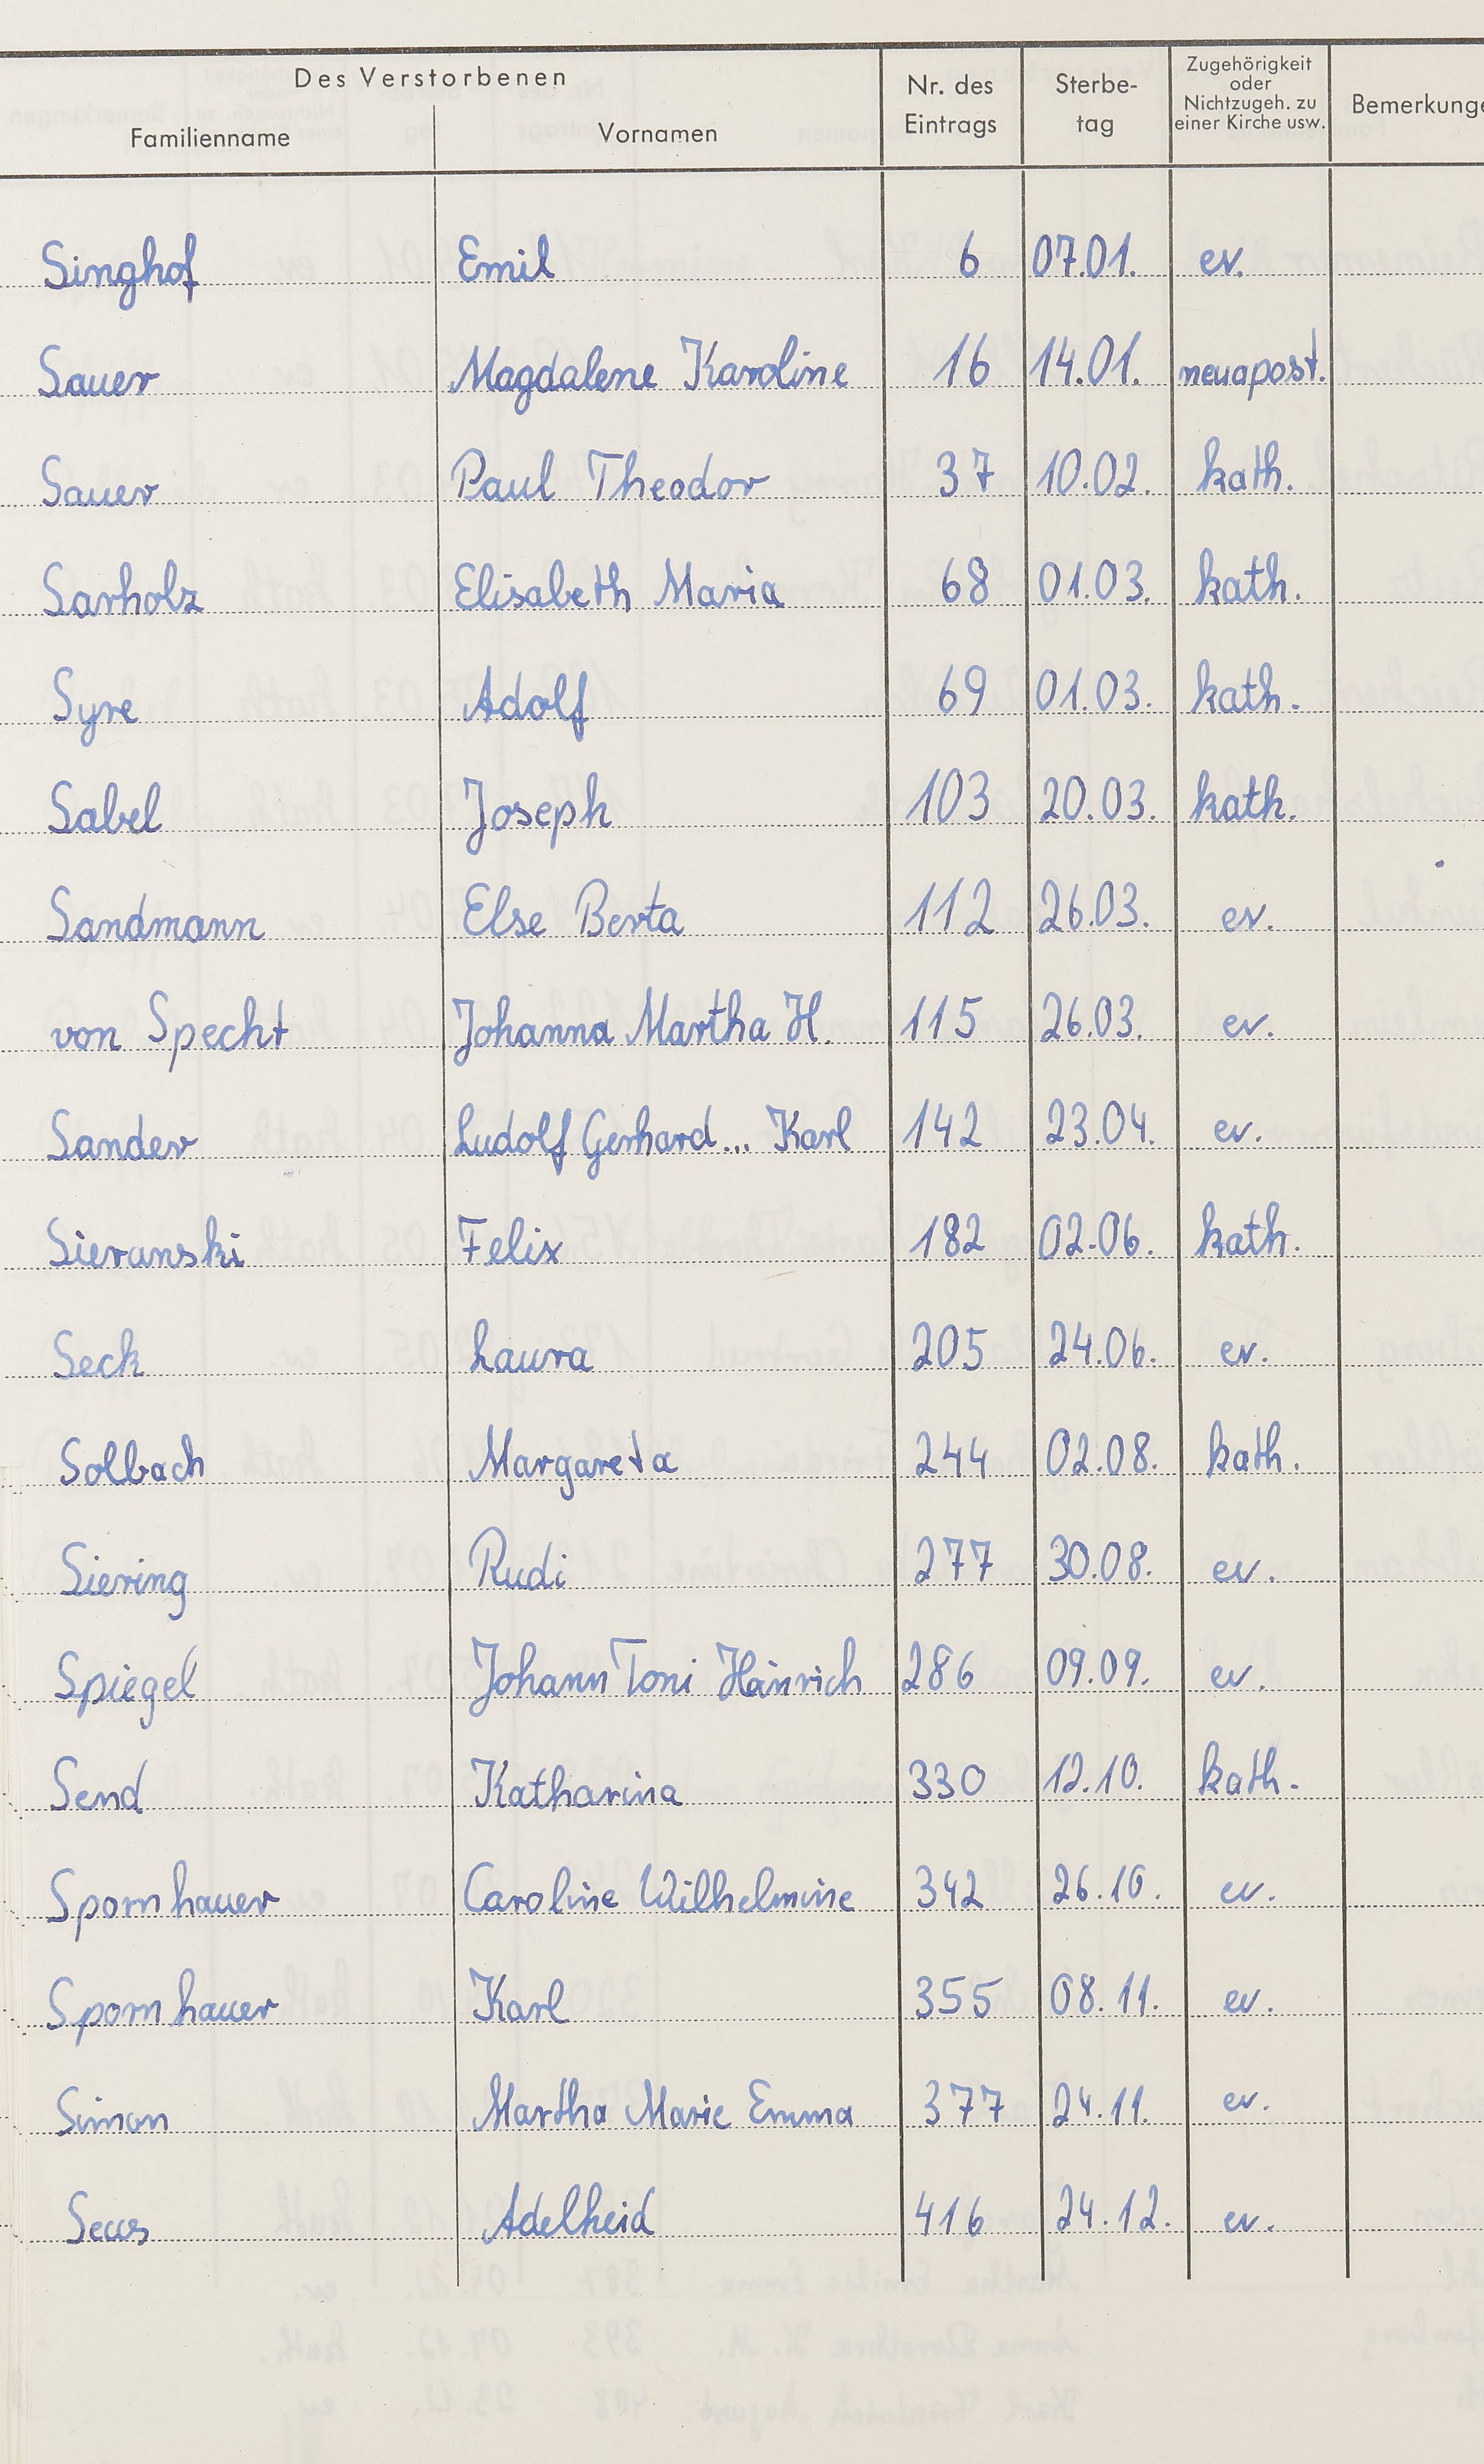 Des Verstorbenen
Familienname Vornamen Nr. des Eintrags Sterbe-tag Zugehörigkeit oder Nichtzugeh. zu einer Kirche usw. Bemerkunge
Singhof Emil 6 07.01. ev.
Sauer Magdalene Karoline 16 14.01. neuapost.
Sauer Paul Theodor 37 10.02. kath.
Sarholz Elisabeth Maria 68 01.03. kath.
Syre Adolf 69 01.03. kath.
Sabel Joseph 103 20.03. kath.
Sandmann Else Berta 112 26.03. ev.
von Specht Johanna Martha H. 115 26.03. ev.
Sander Ludolf Gerhard... Karl 142 23.04. ev.
Sieranski Felix 182 02.06. kath.
Seck Laura 205 24.06. ev.
Solbach Margareta 244 02.08. kath.
Siering Rudi 277 30.08. ev.
Spiegel Johann Toni Heinrich 286 09.09. ev.
Send Katharina 330 12.10. kath.
Spornhauer Caroline Wilhelmine 342 26.10. ev.
Spornhauer Karl 355 08.11. ev.
Simon Martha Marie Emma 377 24.11. ev.
Adelheid 416 24.12. ev.